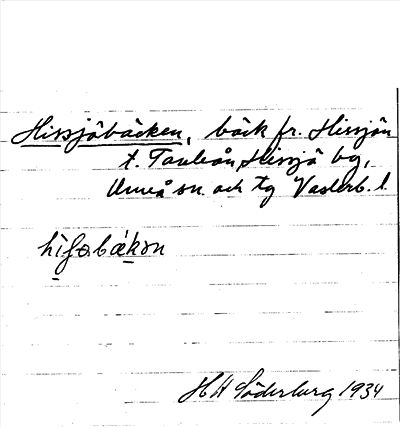 Hissjöbäcken, bäck fr. Hissjön
t. Tavleån, Hissjö by,
Umeå sn. och tg Västerb. l.
hìʃɵbǽkən
H H Söderberg 1934